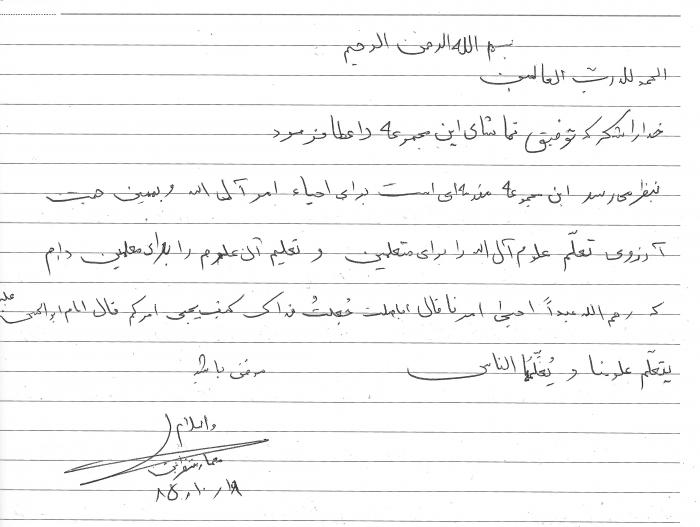 بسم الله الرحمن الرحیم
الحمد لله رب العالمین
خدا را شکر که توفیق تماشای این مجموعه را عطا فرمود
بنظر می رسد این مجموعه مقدمه ای است برای احیاء امر آل الله و بهمین جهت
آرزوی تعلّم علوم آل الله را برای متعلمین و تعلیم آن علوم را برای معلمین دارم
که رحم الله عبداً احیی امرنا قال اباصلت جُعِلتُ فداک کیف یحیی امرکم قال الامام ابوالحسن علیه
یتعلّم علومنا و یُعَلِّمُها الناس موفق باشید
والسلام
۸۵،۱۰،۱۹